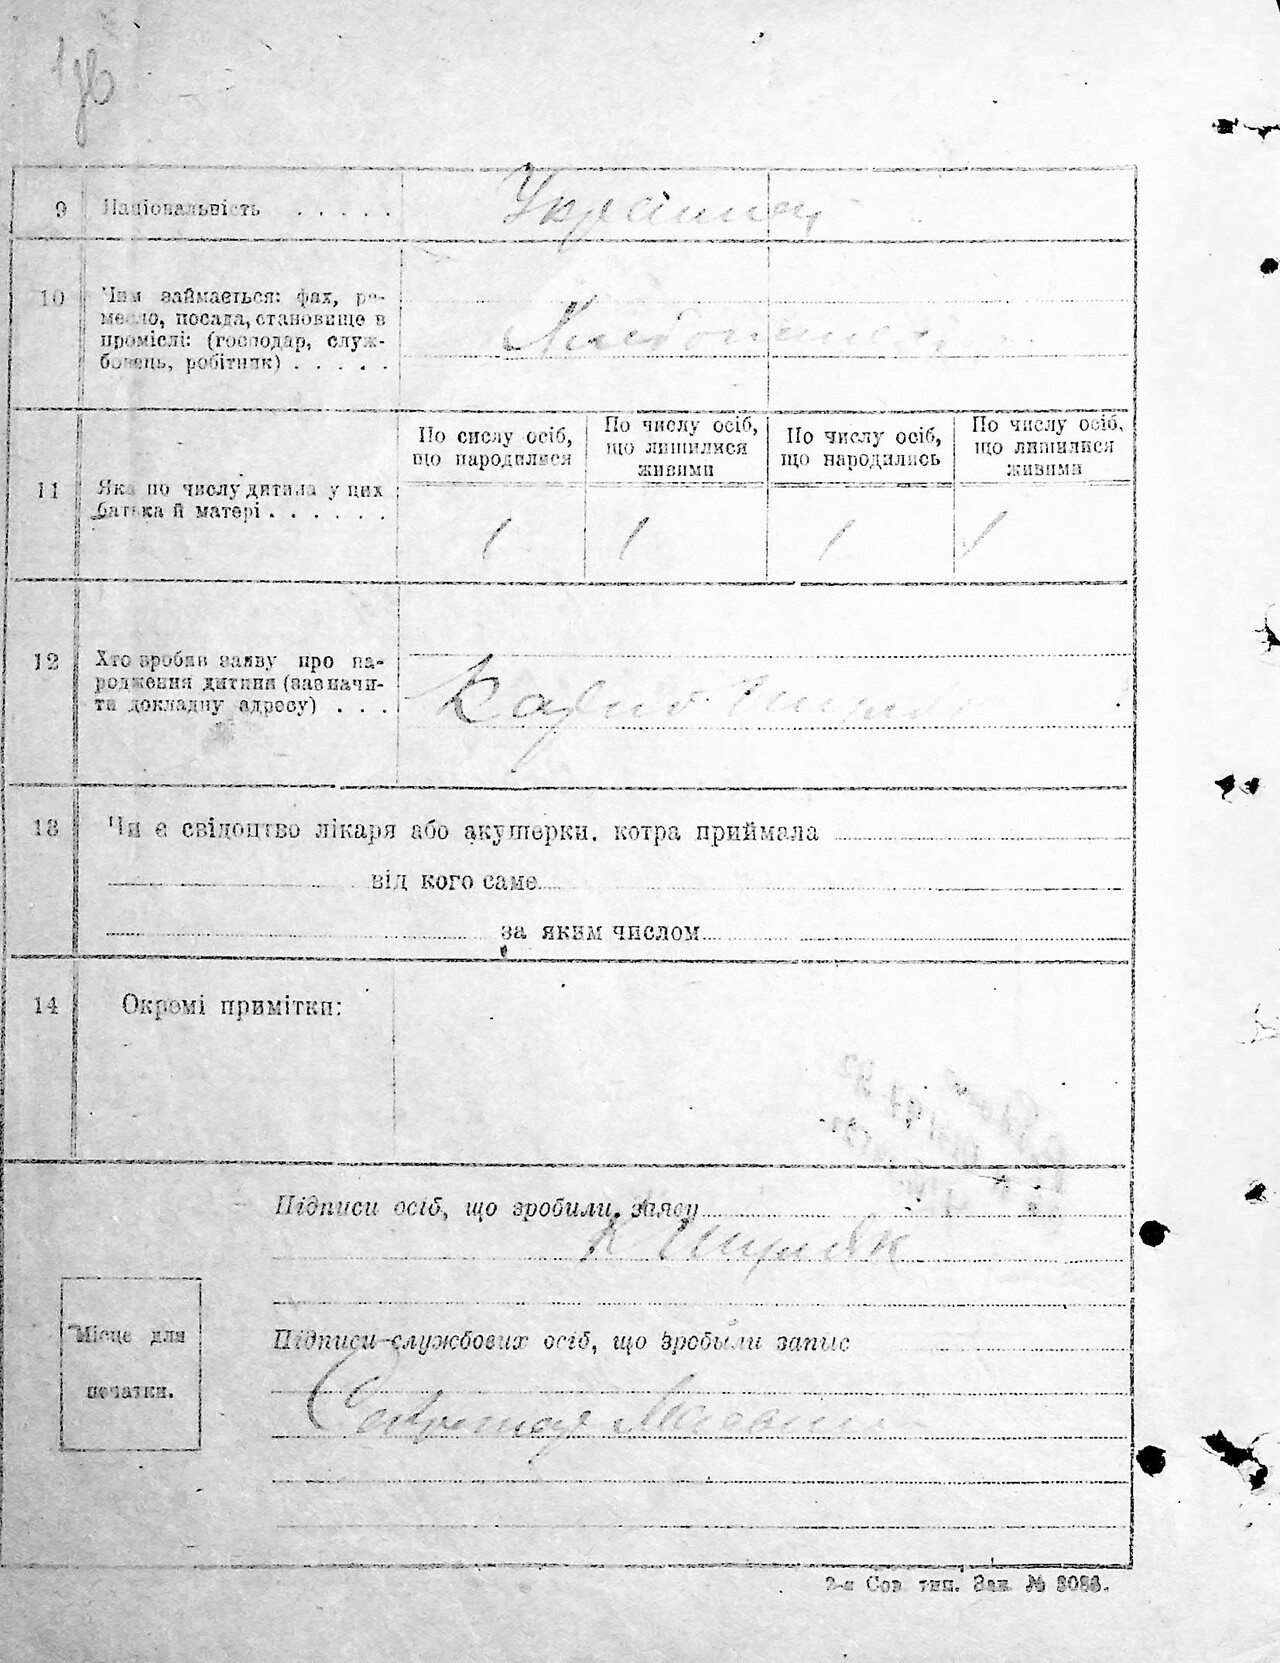 9 Національність . . . . .
Українці
10 Чим займається: фах, ре-
месло, посада, становище в
проміслі: (господар, служ-
бовець, робітник) . . . . .
По сислу осіб,
що народилися
По числу осіб,
що лишилися
живими
По числу осіб,
що народились
По числу осіб,
що лишилися
живими
11 Яка по числу дитина у цих
батька й матері . . . . . .
1 1 1 1
12 Хто зробив заяву про на-
родження дитини (зазначи-
ти докладну адресу) . . .
13 Чи є свідоцтво лікаря або акушерки, котра приймала
від кого саме
за яким числом
14 Окромі примітки:
Підписи осіб, що зробили заяву
Місце для
печатки.
Підписи службових осіб, що зробыли запис
Секретар
2-а Сов. тип. Зак. № 3086.